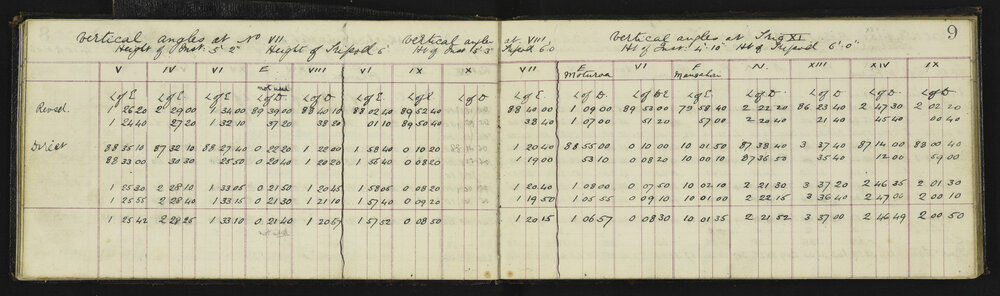 9
Vertical angles at No VII Vertical angles at VIII Vertical angles at Trig XI
Height of Inst. 5' 2" Height of Tripod 6' Ht of Inst 5' 3" Tripod 6.0 Ht of Inst. 4' 10" Ht of Tripod 6' 0"
V IV VI E VIII VI IX X VII E Moturoa VI F Mangahau N. XIII XIV IX
not used
L of E. L of E. L of E. L of D. L of D. L of E. L of E. L of D. L of E. L of D. L of E. L of D. L of D. L of D. L of D. L of D.
Revsd. 1 26 20 2 29 00 1 34 00 89 39 00 88 40 10 88 02 40 89 52 40 88 40 00 1 09 00 89 53 00 79 58 40 2 22 20 86 23 40 2 47 30 2 02 20
1 24 40 27 20 1 32 10 37 20 38 20 01 10 89 50 40 38 40 1 07 00 51 20 57 00 2 20 40 21 40 45 40 00 40
Direct 88 35 10 87 32 10 88 27 40 0 22 20 1 22 00 1 58 40 0 10 20 1 20 40 88 55 00 0 10 00 10 01 50 87 38 40 3 37 40 87 14 00 88 00 40
88 33 00 30 30 25 50 0 20 40 1 20 20 1 56 40 0 08 20 1 19 00 53 10 0 08 20 10 00 10 87 36 50 35 40 12 00 59 00
1 25 30 2 28 10 1 33 05 0 21 50 1 20 45 1 58 05 0 08 20 1 20 40 1 08 00 0 07 50 10 02 10 2 21 30 3 37 20 2 46 35 2 01 30
1 25 55 2 28 40 1 33 15 0 21 30 1 21 10 1 57 40 0 09 20 1 19 50 1 05 55 0 09 10 10 01 00 2 22 15 3 36 40 2 47 00 2 00 10
1 25 42 2 28 25 1 33 10 0 21 40 1 20 57 1 57 52 0 08 50 1 20 15 1 06 57 0 08 30 10 01 35 2 21 52 3 37 00 2 46 49 2 00 50
not used